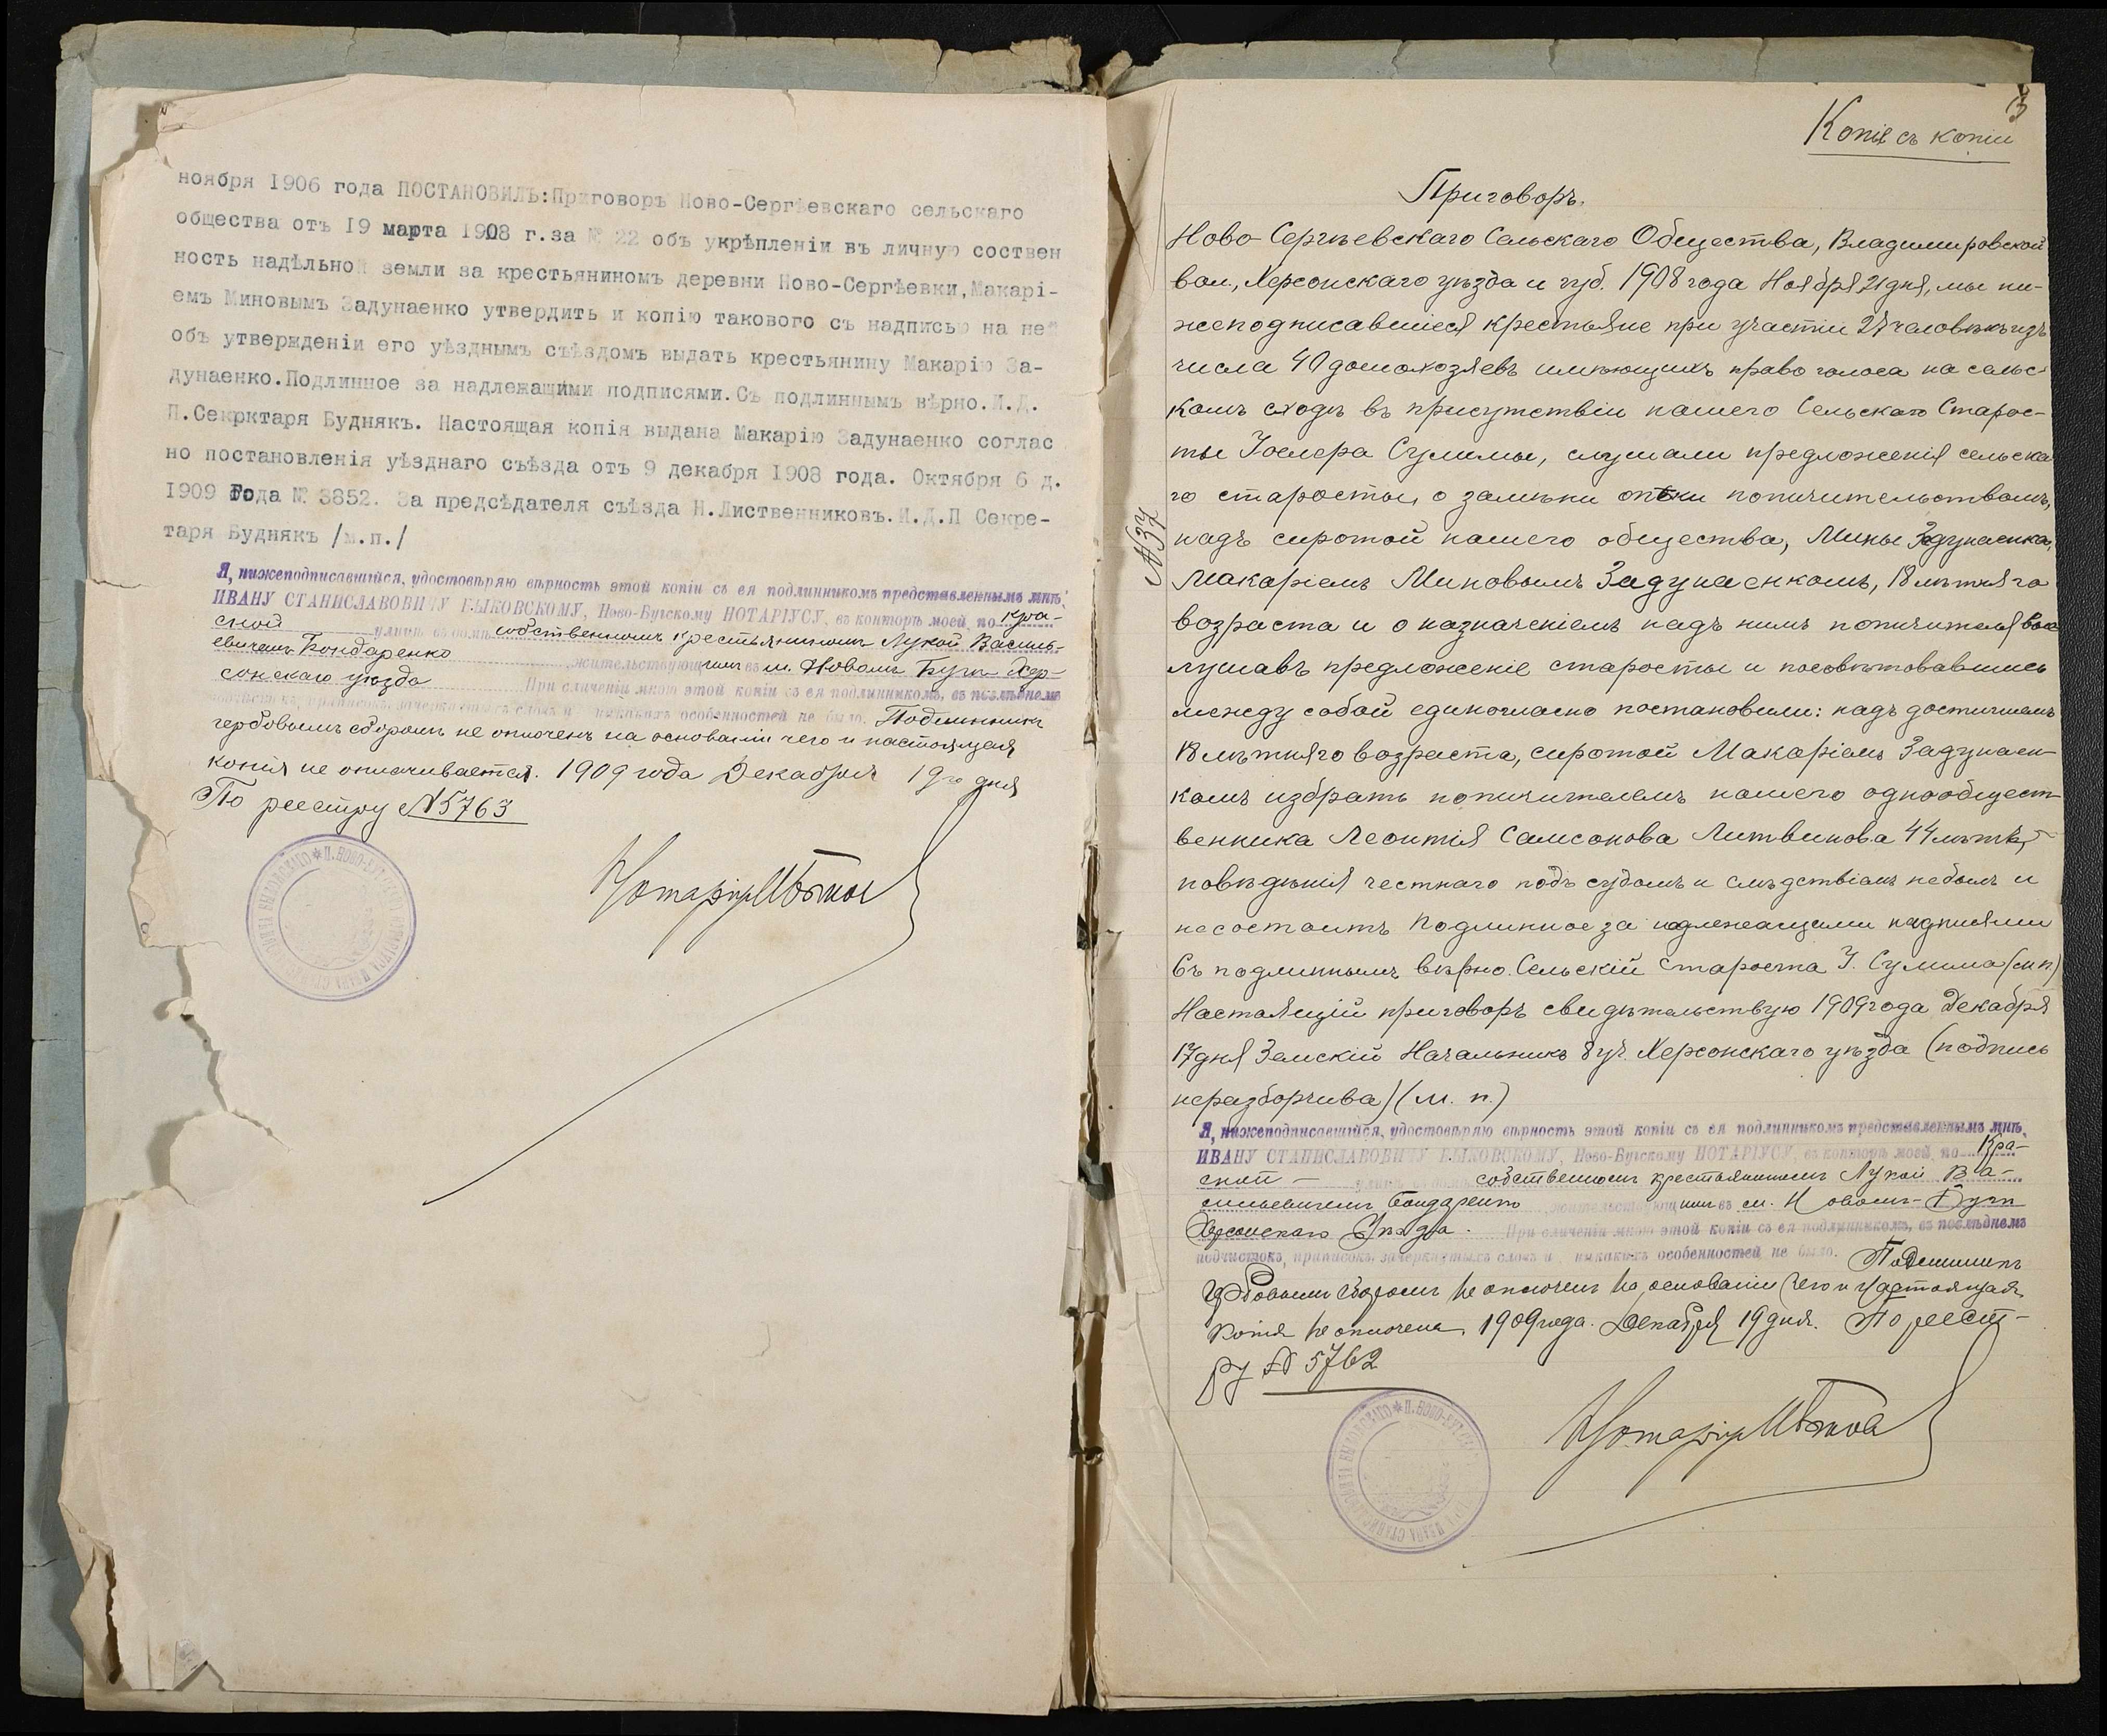 ноября 1906 года ПОСТАНОВИЛЪ:Приговоръ Ново-Сергѣевскаго сельскаго
общества отъ 19 марта 1908 г.за № 22 объ укрѣпленіи въ личную соствен
ность надѣльной земли за крестьяниномъ деревни Ново-Сергѣевки,Макарі-
емъ Миновымъ Задунаенко утвердить и копію такового съ надписью на не
объ утвержденіи его уѣзднымъ съѣздомъ выдать крестьянину Макарію За-
дунаенко.Подлинное за надлежащими подписями.Съ подлиннымъ вѣрно.И.Д.
П.Секрктаря Буднякъ. Настоящая копія выдана Макарію Задунаенко соглас
но постановленія уѣзднаго съѣзда отъ 9 декабря 1908 года. Октября 6 д.
1909 Года № 3852. За предсѣдателя съѣзда Н.Лиственниковъ.И.Д.П Секре-
таря Буднякъ /м.п./
Я, нижеподписавшійся, удостовѣряю вѣрность этой копіи съ ея подлинникомъ представленнымъ мнѣ,
ИВАНУ СТАНИСЛАВОВИЧУ БЫКОВСКОМУ, Ново-Бугскому НОТАРІУСУ, въ конторѣ моей, по Кра-
сной улицѣ въ домѣ собственномъ крестьяниномъ Лукой Василь-
евичемъ Бондаренко жительствующимъ въ м. Новомъ Бугѣ Хер-
сонскаго уѣзда При сличеніи мною этой копіи съ ея подлинникомъ, въ послѣднемъ
подчистокъ, приписокъ, зачеркнутыхъ словъ и никакихъ особенностей не было. Подлинникъ
гербовымъ сборомъ не оплоченъ на основаніи чего и настоящая
копія не оплачивается. 1909 года Декабря 19го дня
По реестру №5763
Нотаріусъ
13
Копія съ копіи
Приговоръ.
Ново-Сергѣевскаго Сельскаго Общества, Владимировской
вол., Херсонскаго уѣзда и губ. 1908 года Ноября 21 дня, мы ни-
жеподписавшіеся крестьяне при участіи 27 человѣкъ изъ
числа 40 домохозяевъ имѣющихъ право голоса на сельс-
комъ сходѣ въ присутствіи нашего Сельскаго Старос-
ты Сулимы, слушали предложенія сельска
го старосты, о замѣни опѣки попичительствомъ,
надъ сиротой нашего общества, Мины Задунаенка,
№37
Макаріемъ Миновымъ Задунаенкомъ, 18 лѣтняго
возраста и о назначеніемъ надъ нимъ попичителя выс
лушавъ предложеніе старосты и посовѣтовавшись
между собой единогласно постановили: надъ достигшемъ
18 лѣтняго возраста, сиротой Макаріемъ Задунаен-
комъ избрать попичителемъ нашего однообщест-
венника Леонтія Самсонова Литвинова 44 лѣтъ,
повѣдѣнія честнаго подъ судомъ и слѣдствіемъ небылъ и
несостоитъ Подлинное за надлежащими надписями
Съ подлиннымъ вѣрно. Сельскій Староста І. Сулима (м.п.)
Настоящій приговоръ свидѣтельствую 1909 года Декабря
17 дня Земскій Начальникъ 8 уч. Херсонскаго уѣзда (подпись
неразборчива) (м. п.)
Я, нижеподписавшійся, удостовѣряю вѣрность этой копіи съ ея подлинникомъ представленнымъ мнѣ,
ИВАНУ СТАНИСЛАВОВИЧУ БЫКОВСКОМУ, Ново-Бугскому НОТАРІУСУ, въ конторѣ моей, по Кра-
сной - улицѣ въ домѣ собственномъ крестьяниномъ Лукой Ва-
сильевичемъ Бондаренко жительствующимъ въ м. Новомъ-Бугѣ
Херсонскаго уѣзда. При сличеніи мною этой копіи съ ея подлинникомъ, въ послѣднемъ
подчистокъ, приписокъ, зачеркнутыхъ словъ и никакихъ особенностей не было. Подлинникъ
Гербовымъ сборомъ не оплоченъ на основаніи чего и настоящая
копія не оплочена. 1909 года. Декабря 19 дня. По реест-
ру № 5762
Нотаріусъ